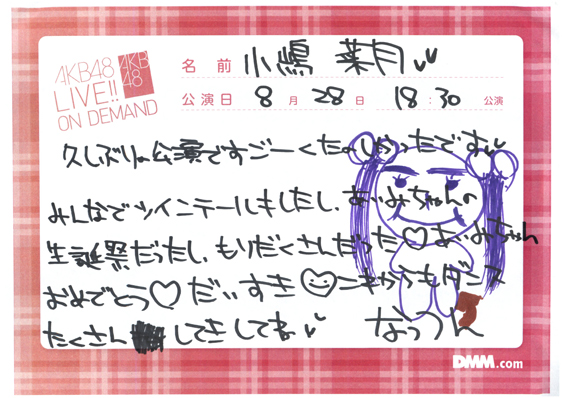 AKB48
LIVE!!
ON DEMAND
AKB
48
名前 小嶋 菜月
公演日 8月 28日 18:30 公演
久しぶりの公演ですごーくたのしかったです
みんなでツインテールもしたし、あいみちゃんの
生誕祭だったし、もりだくさんだった♡あいみちゃん
おめでとう♡だいすき♡これからもダンス
たくさん してきしてね
なっつん
DMM.com